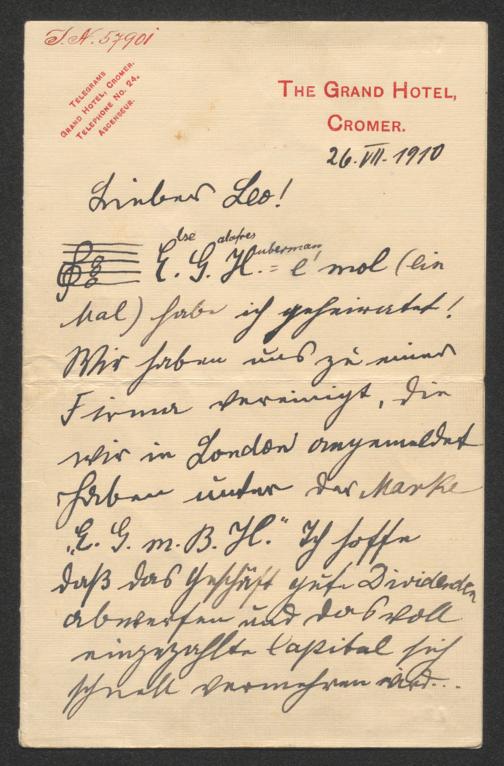 I.N. 57901
TELEGRAMS
GRAND HOTEL, CROMER.
TELEPHONE NO. 24.
ASCENSEUR.
THE GRAND HOTEL,
CROMER.
26.VII.1910
Lieber Leo!
lse alafres uberman
E. G. H. = e' mol (ein
Mal) habe ich geheiratet!
Wir haben uns zu einer
Firma vereinigt, die
wir in London angemeldet
haben unter der Marke
„E. G. m. B. H." Ich hoffe
daß das Geschäft gute Dividenden
abwerfen und das voll
eingezahlte Capital sich
schnell vermehren wird...